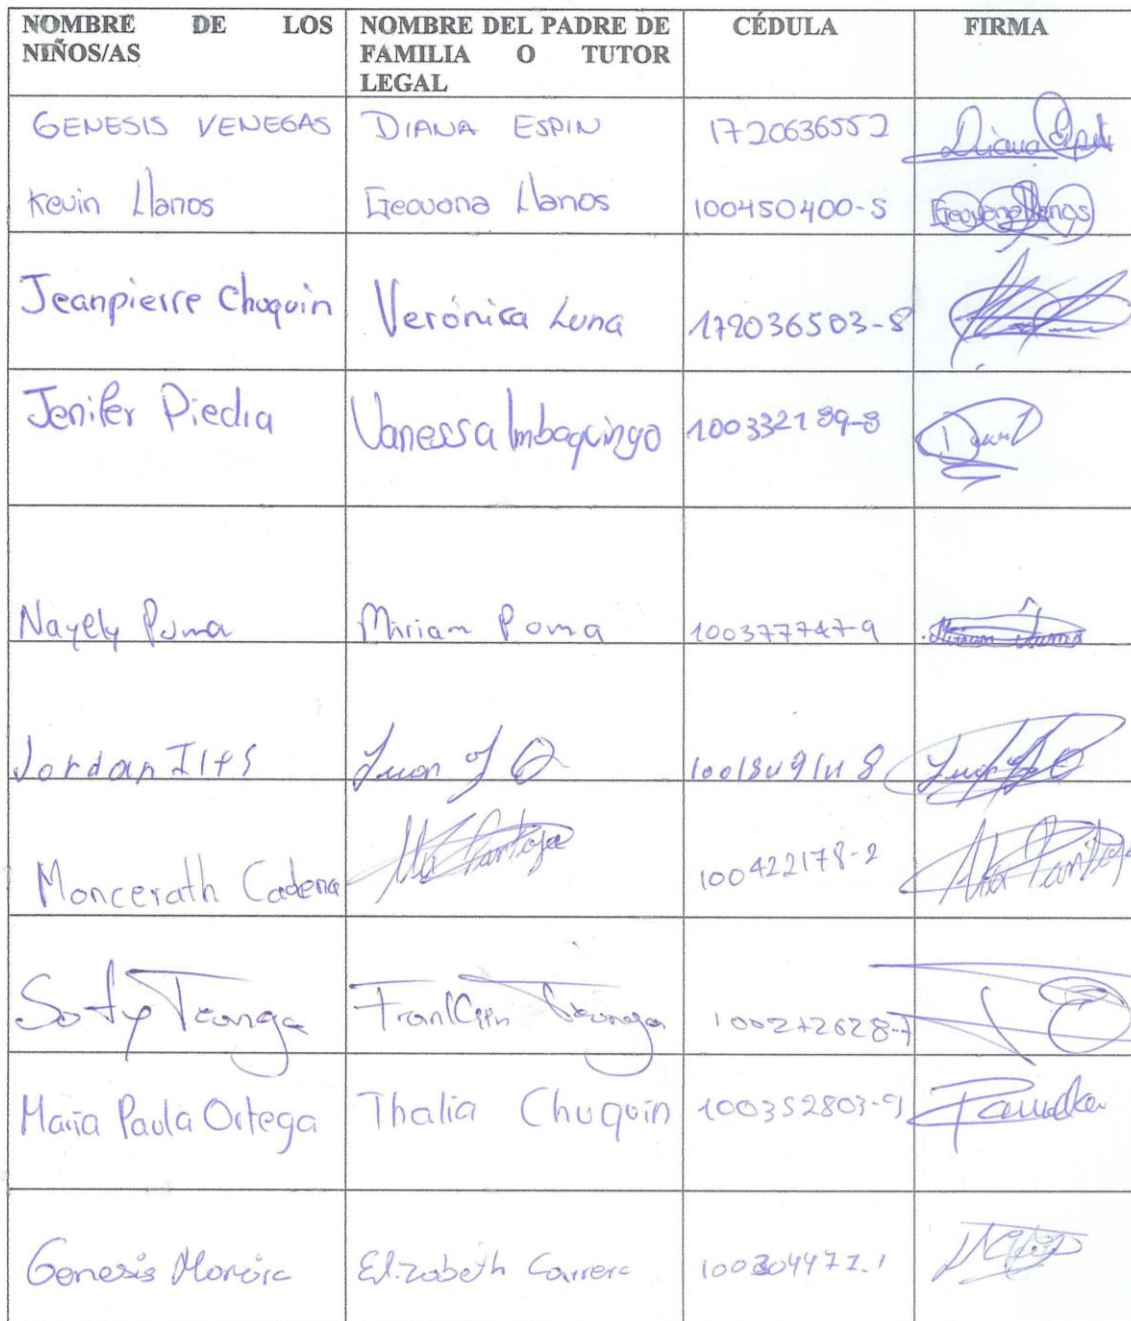 NOMBRE DE LOS NIÑOS/AS
NOMBRE DEL PADRE DE FAMILIA O TUTOR LEGAL
CÉDULA
FIRMA
GENESIS VENEGAS DIANA ESPIN 1720636552 Diana
Kevin Llanos Geovana Llanos 100450400-5 Geovana Llanos
Jeanpierre Chuquin Verónica Luna 172036503-8
Jenifer Piedra Vanessa Imbaquingo 100332189-8
Nayely Puma Miriam Poma 100377747-9 Miriam
Jordan Juan
Moncerath Cadena 100422178-2
Sofy 100272628-7
María Paula Ortega Thalia Chuquin 100352803-9
Genesis Elizabeth 100304477.1